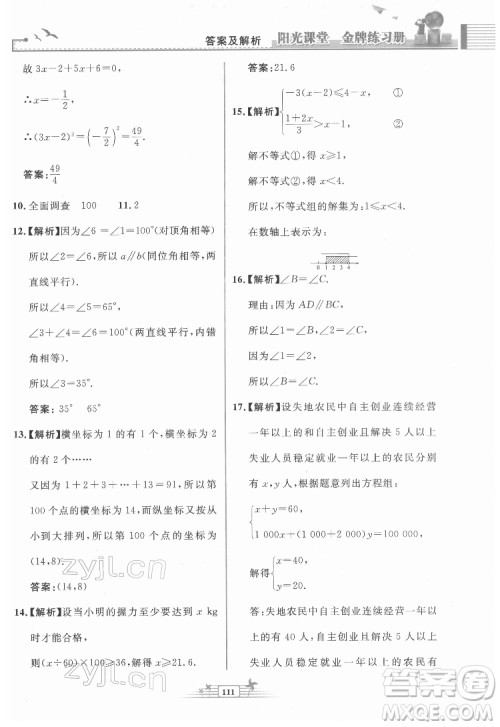 答案及解析
阳光课堂 金牌练习册
故 3x－2＋5x＋6＝0
∴x＝－1/2,
∴(3x－2)²＝(－7/2)²＝49/4.
答案:49/4
10. 全面调查 100 11. 2
12.【解析】因为∠6＝∠1＝100°(对顶角相等)
所以∠2＝∠6,所以 a∥b(同位角相等,两
直线平行)
所以∠3＝∠5＝35°,
∠3＋∠4＝∠6＝100°(两直线平行,内错
角相等)
所以∠7＝35°.
答案:35° 65°
13.【解析】横坐标为 1 的有 1 个,横坐标为 2
的有 2 个……
又因为 1＋2＋3＋……＋13＝91,所以第
100 个点的横坐标为 14,纵坐标应该从
小到大排列,所以第 100 个点的坐标为
(14,8)
答案:(14,8)
14.【解析】设当小明的握力至少达到 x kg
时才能合格,
则(x÷60)×100≥36,解得 x≥21.6.
答案:21.6
15.【解析】{－3(x－2)≤4－x, ①
(1＋2x)/3＞x－1, ②
解不等式①,得 x≥1,
解不等式②,得 x＜4,
所以,不等式组的解集为:1≤x＜4,
在数轴上表示为:
0 1 2 3 4
16.【解析】∠B＝∠C.
理由:因为 AD∥BC,
所以∠1＝∠B,∠2＝∠C.
因为∠1＝∠2,
所以∠B＝∠C.
17.【解析】设失地农民中自主创业连续经营
一年以上的和自主创业且解决 5 人以上
失业人员稳定就业一年以上的农民分别
有 x,y 人,根据题意列出方程组:
{x＋y＝60
1 000x＋(1 000＋2 000)y＝100 000
解得{x＝40
y＝20.
答:失地农民中自主创业连续经营一年以
上的有 40 人,自主创业且解决 5 人以上
失业人员稳定就业一年以上的农民有
zyjl.cn
zyjl.cn
111
答案圈
MXQE.COM